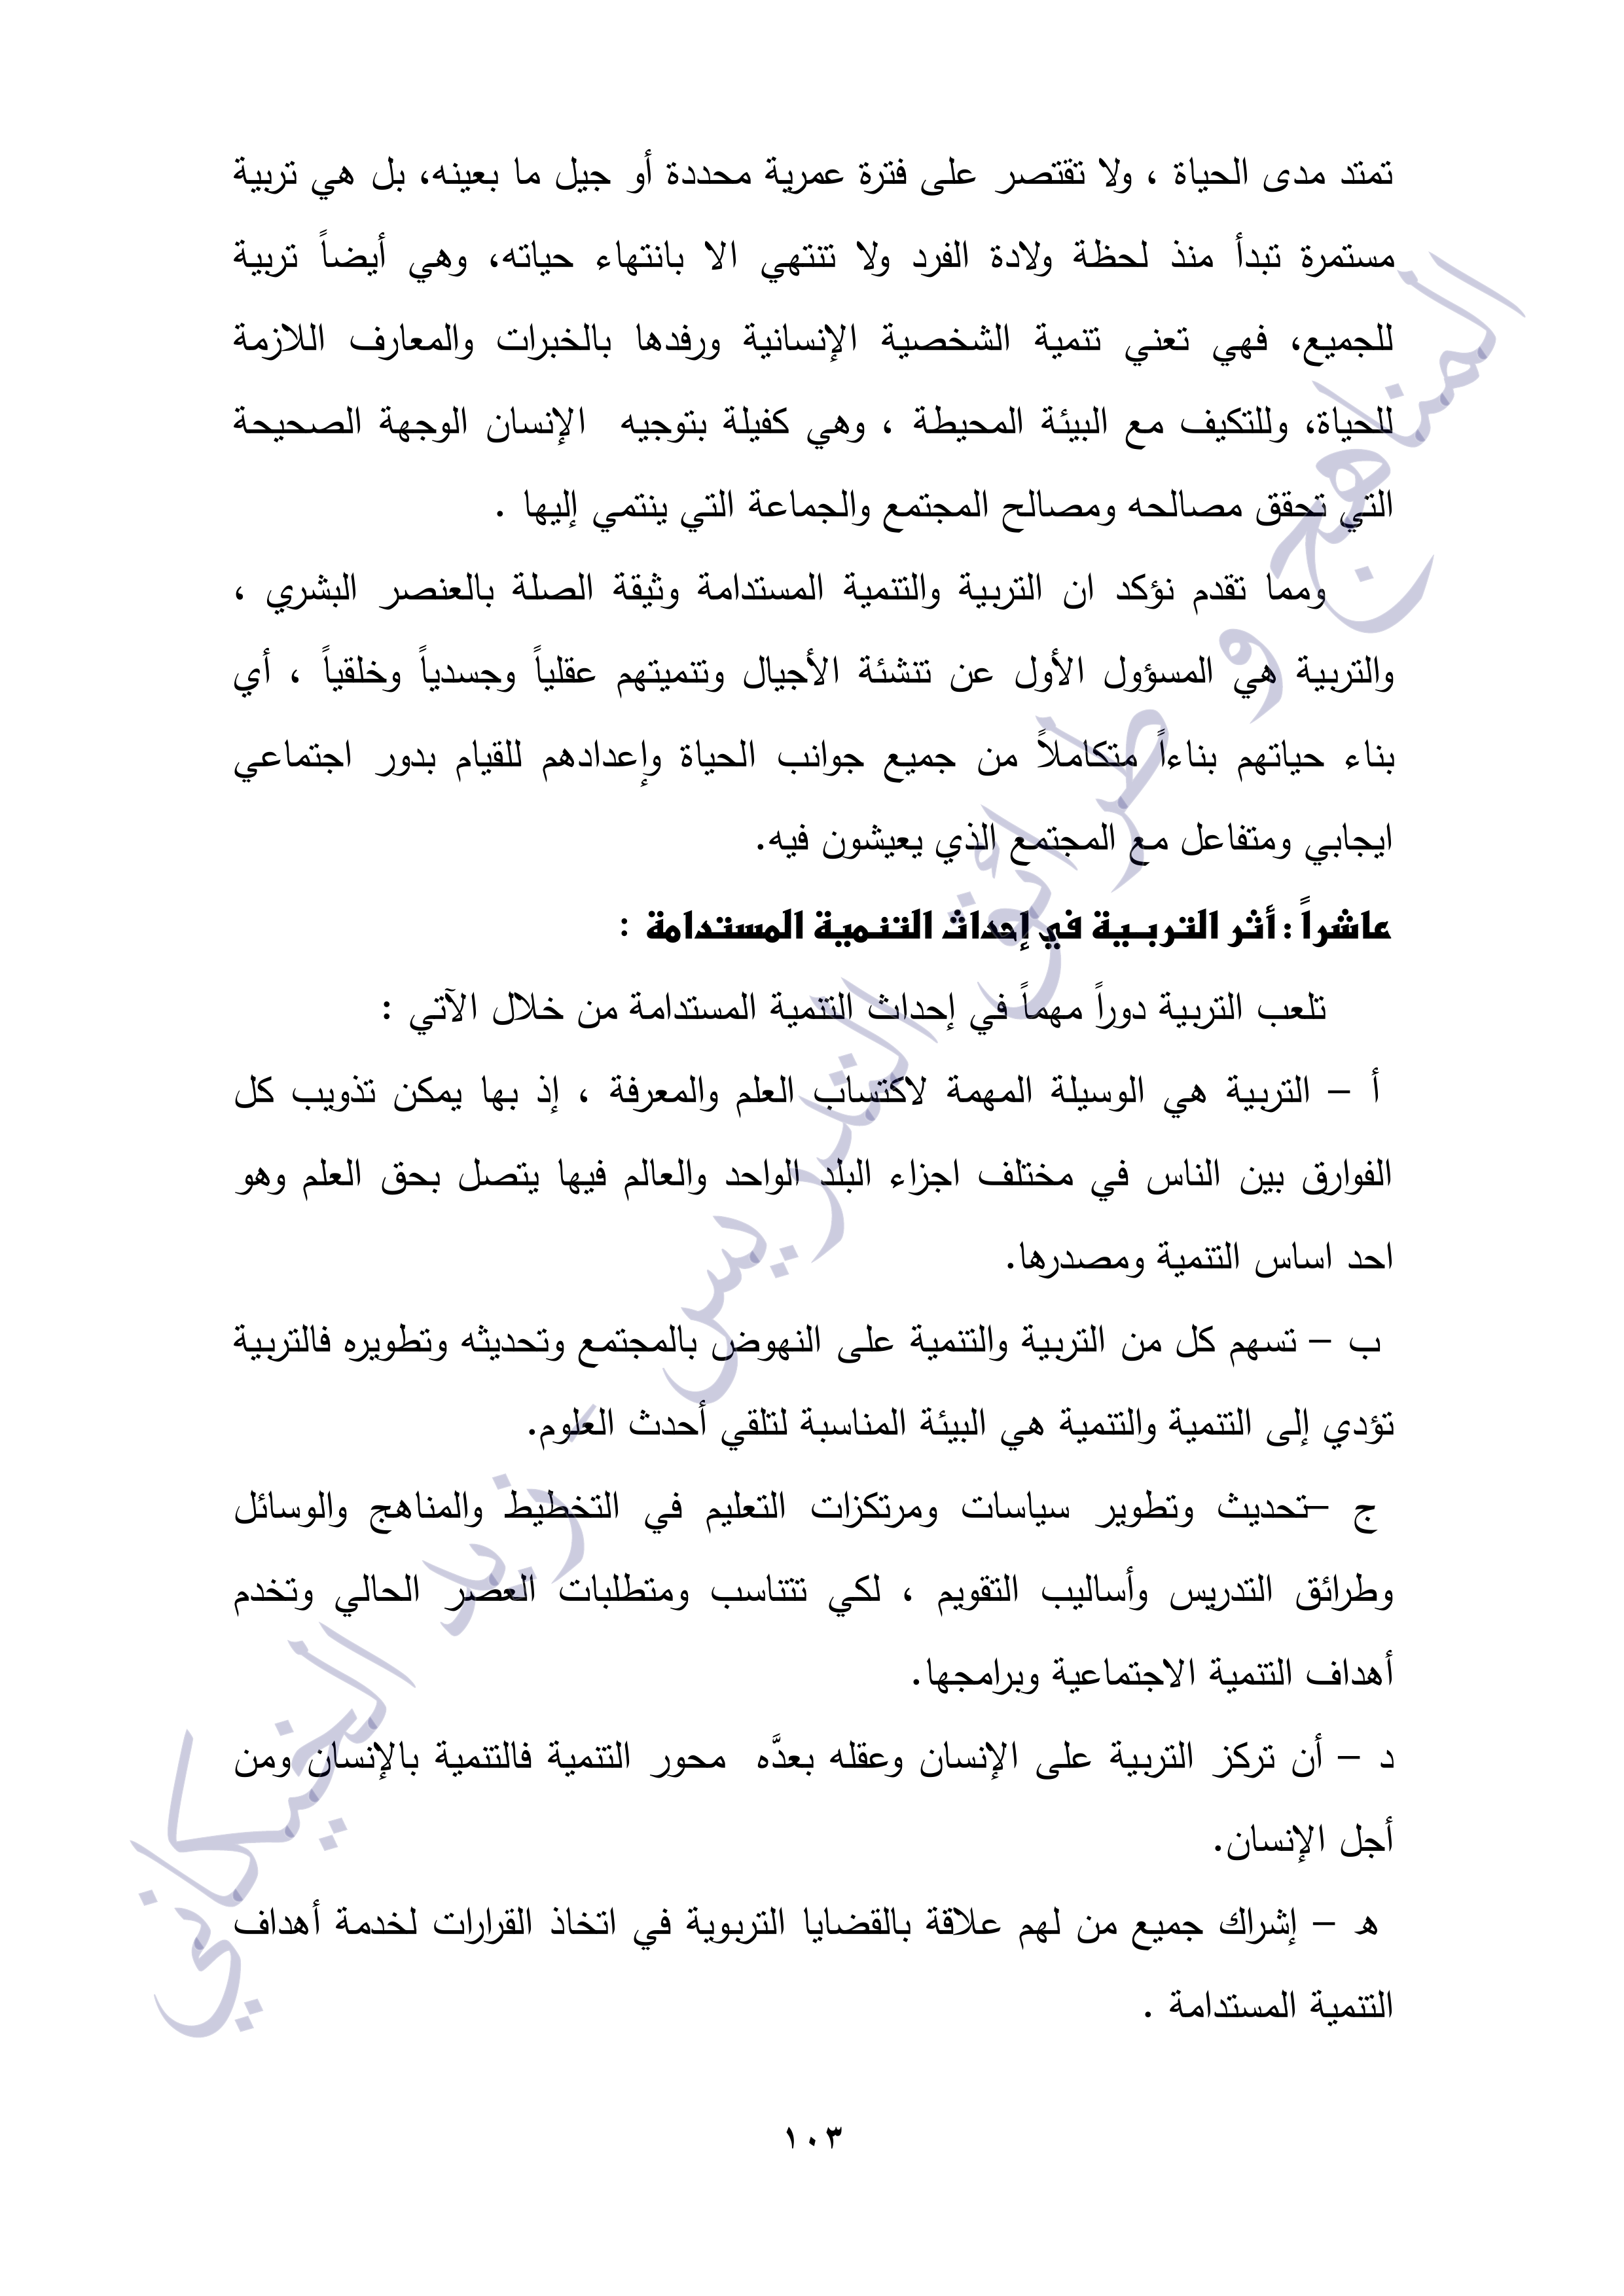 تمتد مدى الحياة ، ولا تقتصر على فترة عمرية محددة أو جيل ما بعينه، بل هي تربية
مستمرة تبدأ منذ لحظة ولادة الفرد ولا تنتهي الا بانتهاء حياته، وهي أيضاً تربية
للجميع، فهي تعني تنمية الشخصية الإنسانية ورفدها بالخبرات والمعارف اللازمة
للحياة، وللتكيف مع البيئة المحيطة ، وهي كفيلة بتوجيه الإنسان الوجهة الصحيحة
التي تحقق مصالحه ومصالح المجتمع والجماعة التي ينتمي إليها .
ومما تقدم نؤكد ان التربية والتنمية المستدامة وثيقة الصلة بالعنصر البشري ،
والتربية هي المسؤول الأول عن تنشئة الأجيال وتنميتهم عقلياً وجسدياً وخلقياً ، أي
بناء حياتهم بناءاً متكاملاً من جميع جوانب الحياة وإعدادهم للقيام بدور اجتماعي
ايجابي ومتفاعل مع المجتمع الذي يعيشون فيه.
عاشراً : أثر التربية في إحداث التنمية المستدامة :
تلعب التربية دوراً مهماً في إحداث التنمية المستدامة من خلال الآتي :
أ – التربية هي الوسيلة المهمة لاكتساب العلم والمعرفة ، إذ بها يمكن تذويب كل
الفوارق بين الناس في مختلف اجزاء البلد الواحد والعالم فيها يتصل بحق العلم وهو
احد اساس التنمية ومصدرها.
ب – تسهم كل من التربية والتنمية على النهوض بالمجتمع وتحديثه وتطويره فالتربية
تؤدي إلى التنمية والتنمية هي البيئة المناسبة لتلقي أحدث العلوم.
ج –تحديث وتطوير سياسات ومرتكزات التعليم في التخطيط والمناهج والوسائل
وطرائق التدريس وأساليب التقويم ، لكي تتناسب ومتطلبات العصر الحالي وتخدم
أهداف التنمية الاجتماعية وبرامجها.
د – أن تركز التربية على الإنسان وعقله بعدَّه محور التنمية فالتنمية بالإنسان ومن
أجل الإنسان.
ه – إشراك جميع من لهم علاقة بالقضايا التربوية في اتخاذ القرارات لخدمة أهداف
التنمية المستدامة .
١٠٣
المناهج و طرائق التدريس - زيد الخيكاني